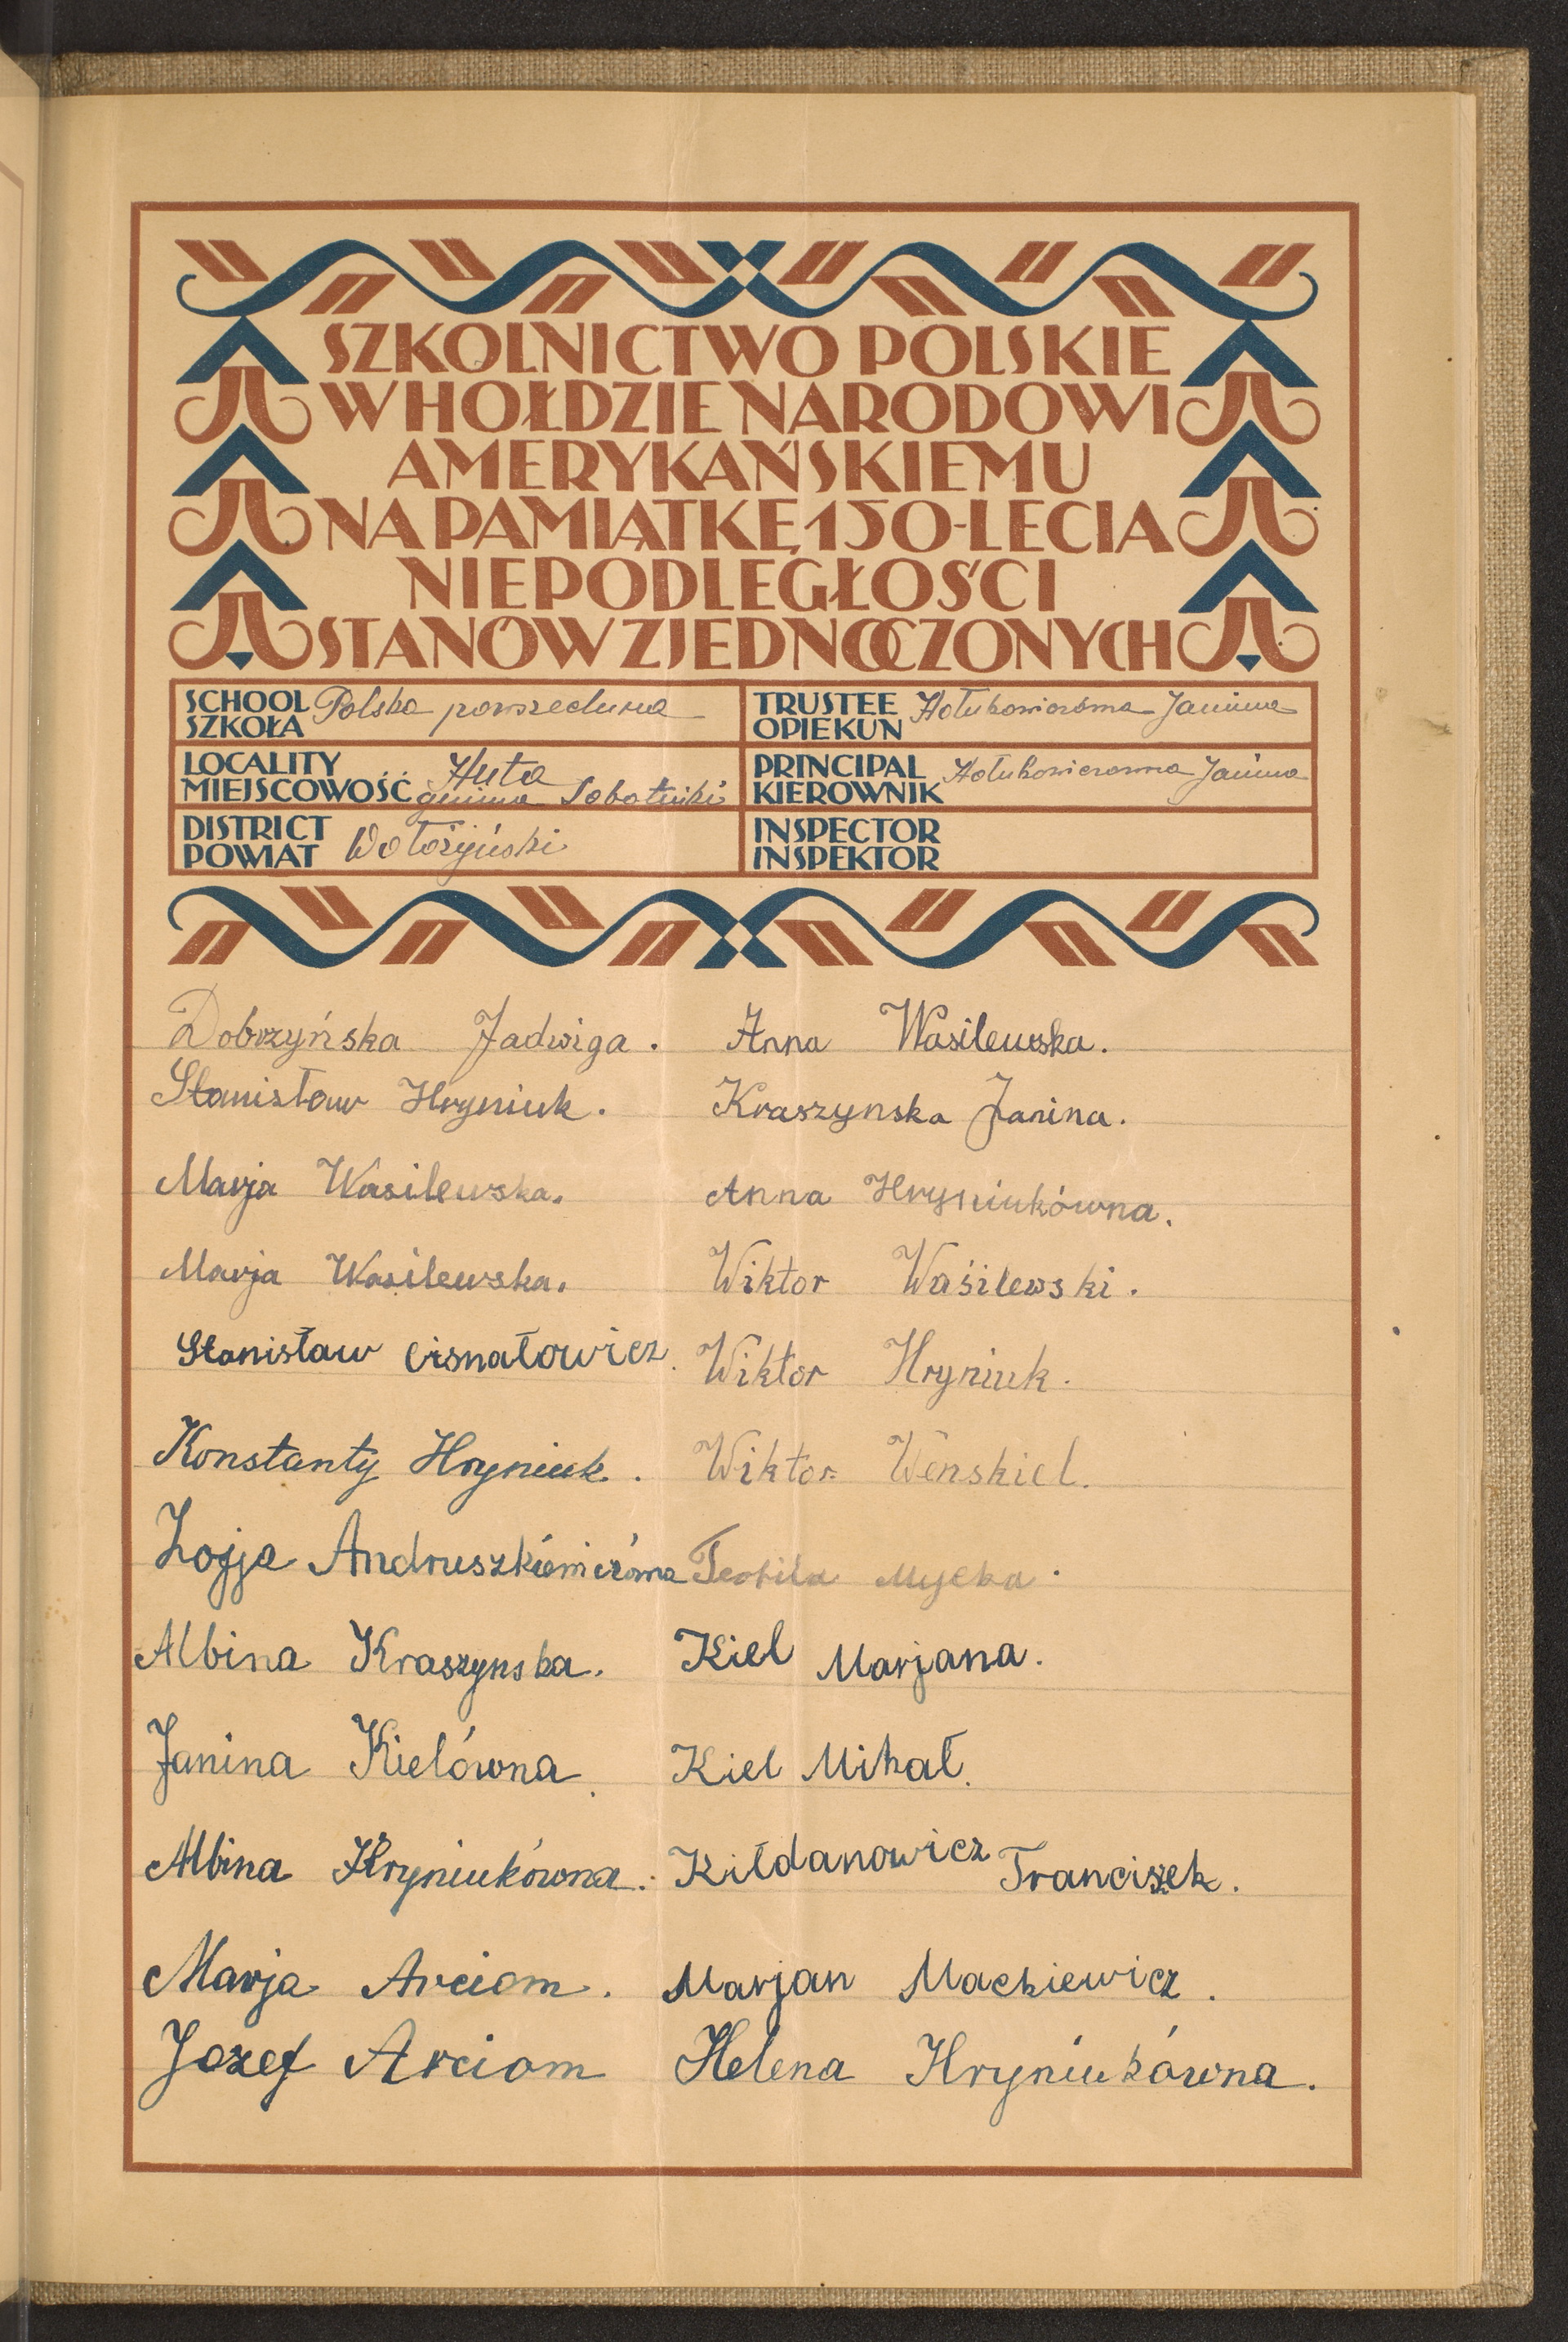 SZKOLNICTWO POLSKIE
W HOŁDZIE NARODOWI
AMERYKAŃSKIEMU
NA PAMIĄTKĘ 150-LECIA
NIEPODLEGŁOŚCI
STANÓW ZJEDNOCZONYCH
SCHOOL
SZKOŁA Polska powszechna
TRUSTEE
OPIEKUN Janina
LOCALITY
MIEJSCOWOŚĆ Huta
gmina Sobotniki
PRINCIPAL
KIEROWNIK Janina
DISTRICT
POWIAT Wołożyński
INSPECTOR
INSPEKTOR
Dobrzyńska Jadwiga.
Stanisław Hryniuk.
Marja Wasilewska.
Marja Wasilewska.
Stanisław Cisnałowicz.
Konstanty Hryniuk.
Zofja Andruszkiewiczówna
Albina Kraszynska.
Janina Kielówna.
Albina Hryniukówna.
Marja Arciom.
Jozef Arciom
Anna Wasilewska.
Kraszynska Janina.
Anna Hryniukówna.
Wiktor Waśilewski.
Wiktor Hryniuk.
Wiktor Wenskiel.
Teofila Mycka.
Kiel Marjana.
Kiel Mihał.
Kiłdanowicz Franciszek.
Marjan Mackiewicz.
Helena Hryniukówna.